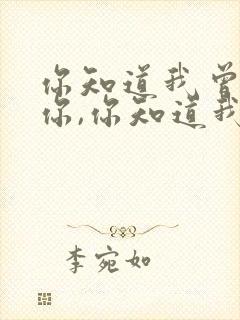 你知道我曾
你,你知道我
李宛如